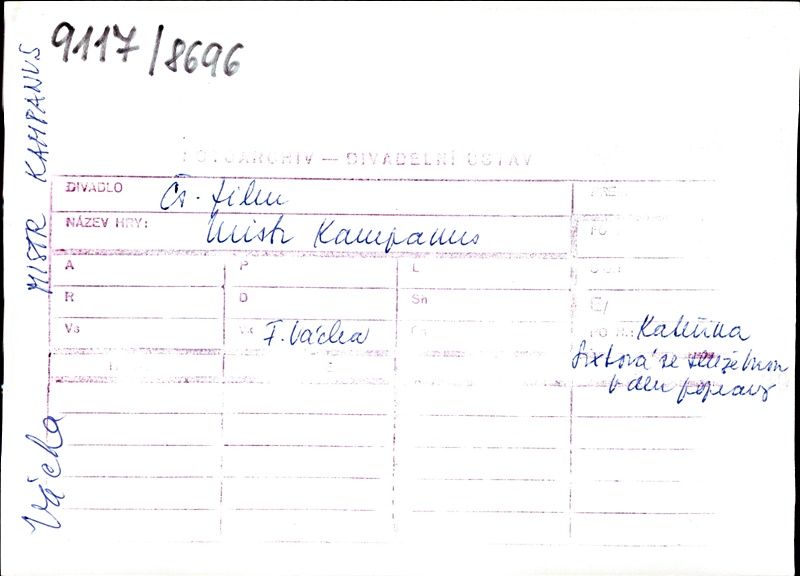 9117/8696
MISTR KAMPANUS
FOTOARCHIV — DIVADELNÍ ÚSTAV
DIVADLO Čs. film
NÁZEV HRY: Mistr Kampanus
A P L
R D Sh
Vs F. Vácha
Kateřina
Sixtová se služebnou
v den popravy
Vácha